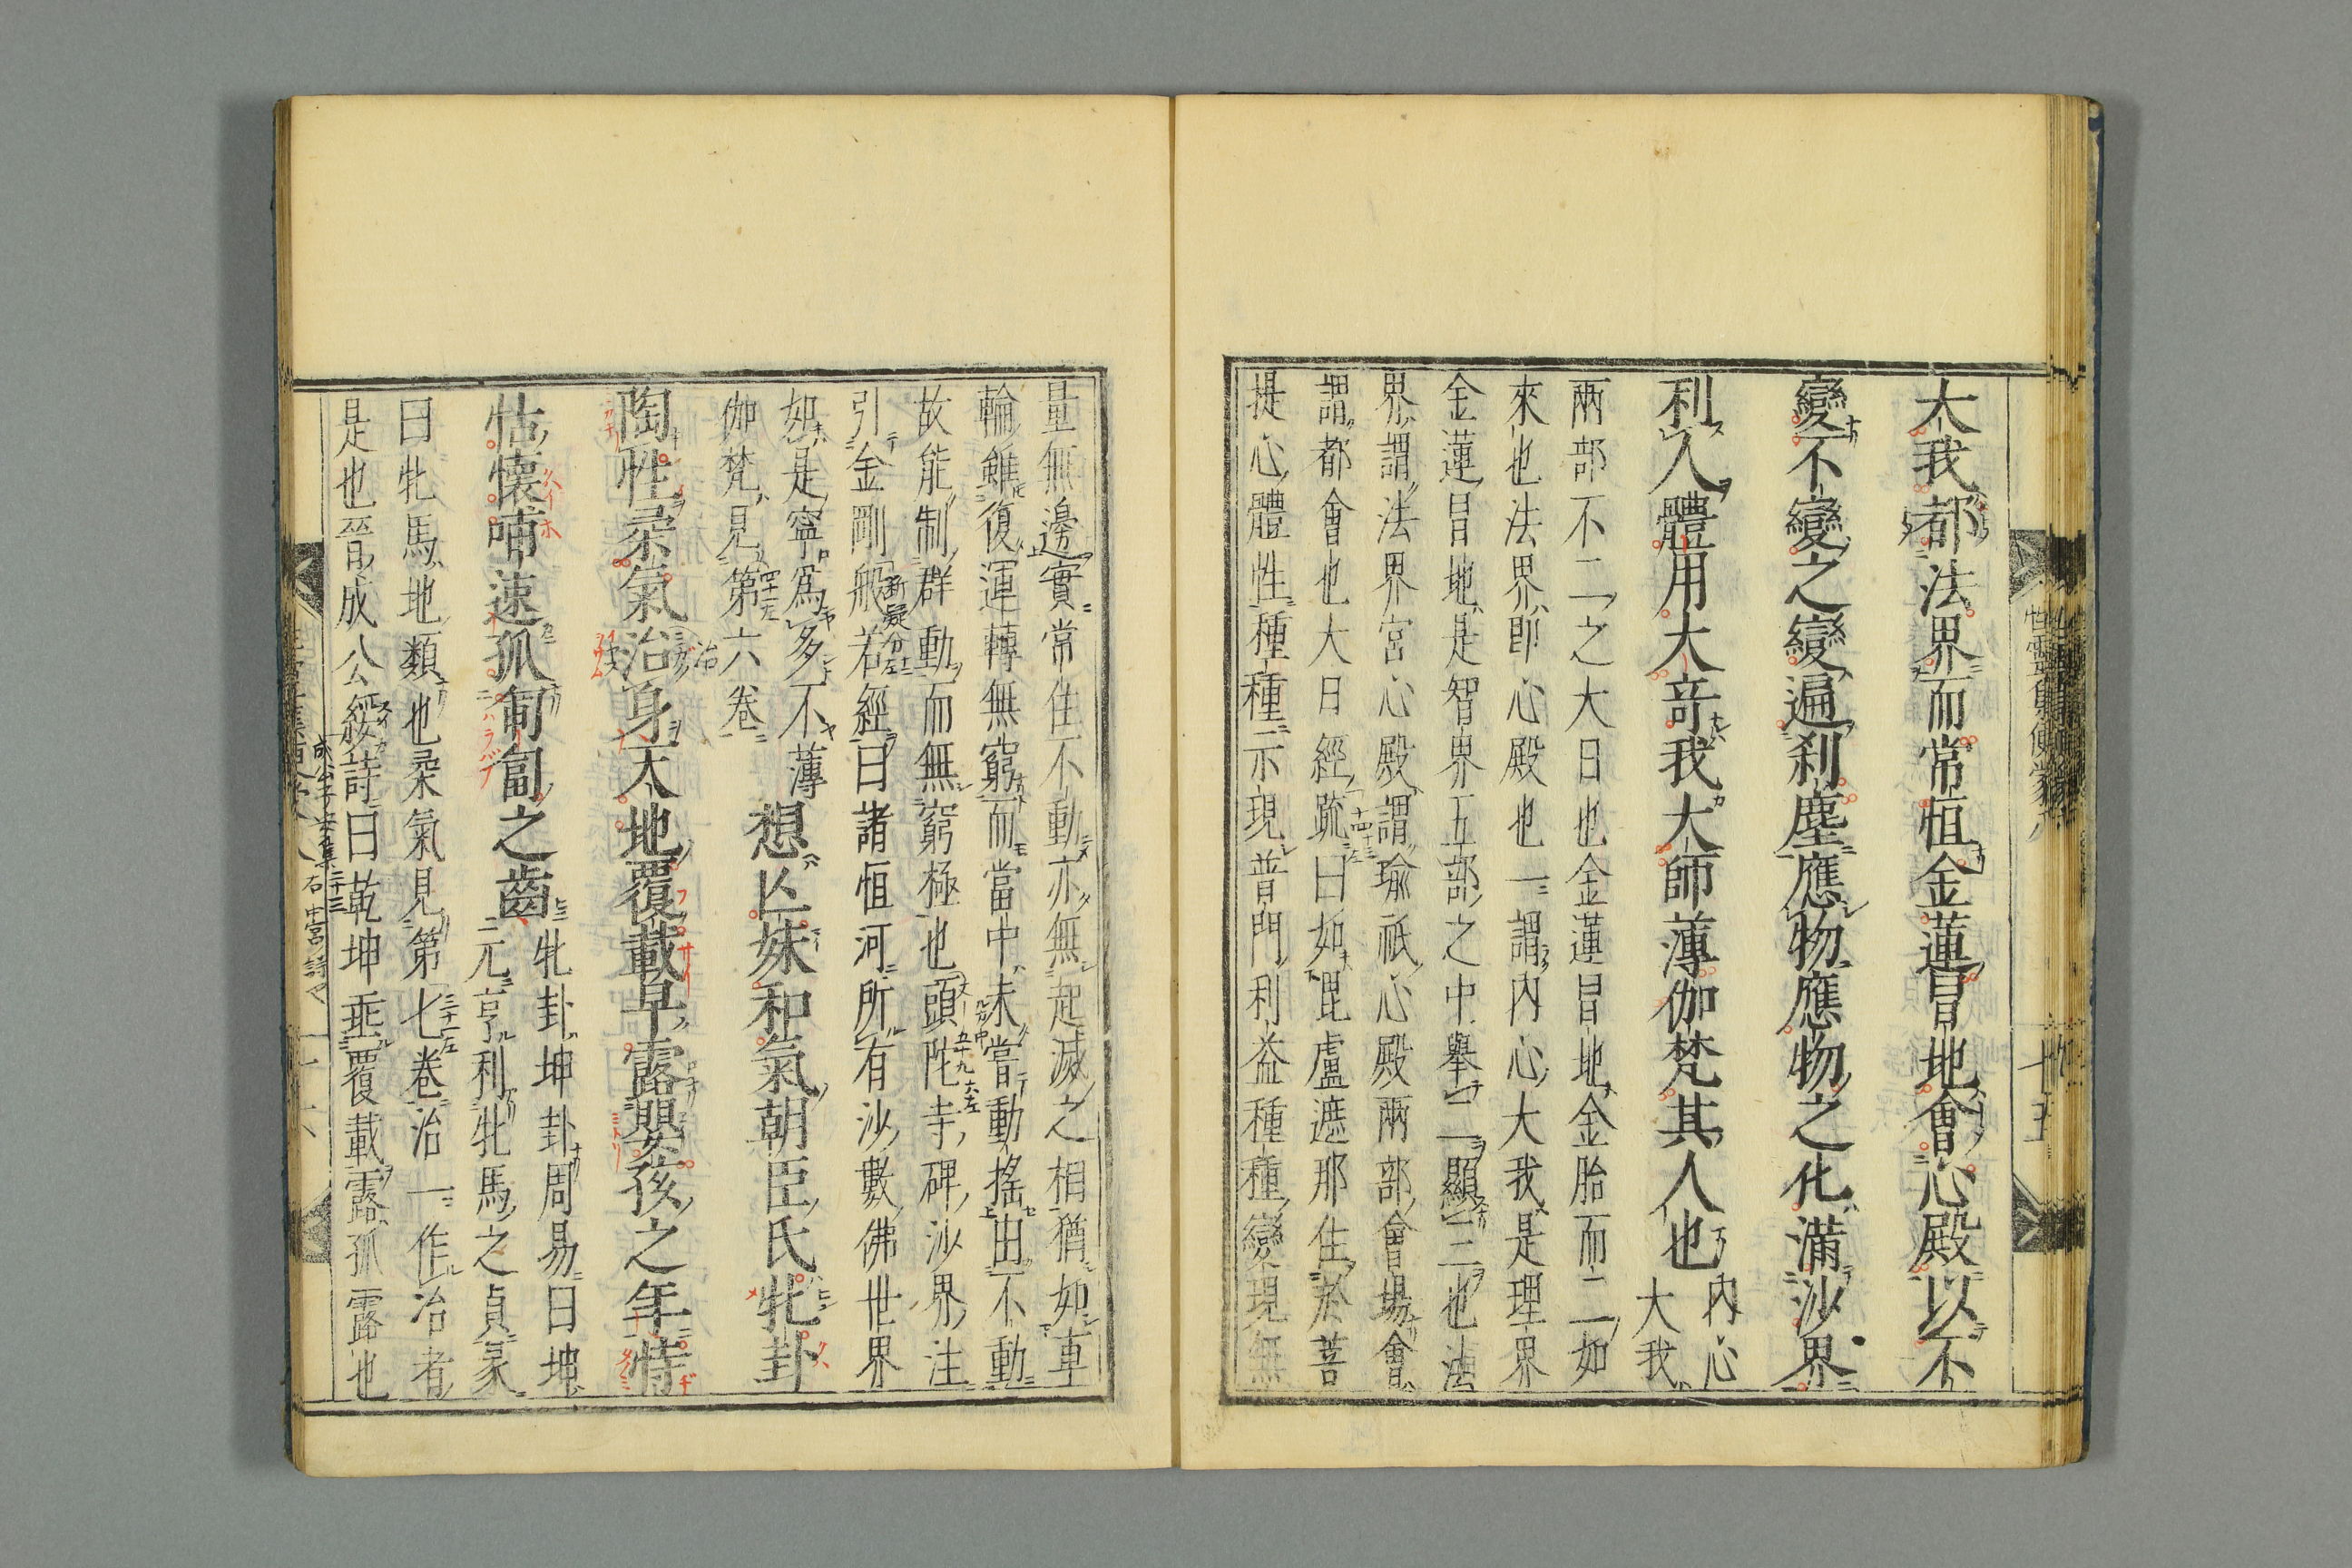 大我都法界而常恒金蓮冒地會心殿以不
變不變之變遍刹塵應物應物之化滿沙界
利人體用大竒我大師薄伽梵其人也 内心大我
兩部不二之大日也金蓮冒地金胎而二如
來也法界即心殿也一謂内心大我是理界
金蓮冒地是智界五部之中舉二顯三也法
界謂法界宮心殿謂瑜祇心殿兩部會場會
謂都會也大日經疏十四十三左曰如毘盧遮那住於菩
提心體性種種示現普門利益種種變現無
量無邊實常住不動亦無起滅之相猶如車
輪雖復運轉無窮而當中未嘗動搖由不動
故能制群動而無窮極也頭陀寺碑沙界注
引金剛般若經曰諸恒河所有沙數佛世界
如是寧爲多不薄伽梵見第六卷 想亡妹和氣朝臣氏牝卦
陶性柔氣治身天地覆載早露嬰孩之年恃
怙懷哺速孤匍匐之齒 牝卦坤卦周易曰坤
元亨利牝馬之貞彖
曰牝馬地類也柔氣見第七卷治一作冶者
是也晉成公綏詩曰乾坤垂覆載露孤露也